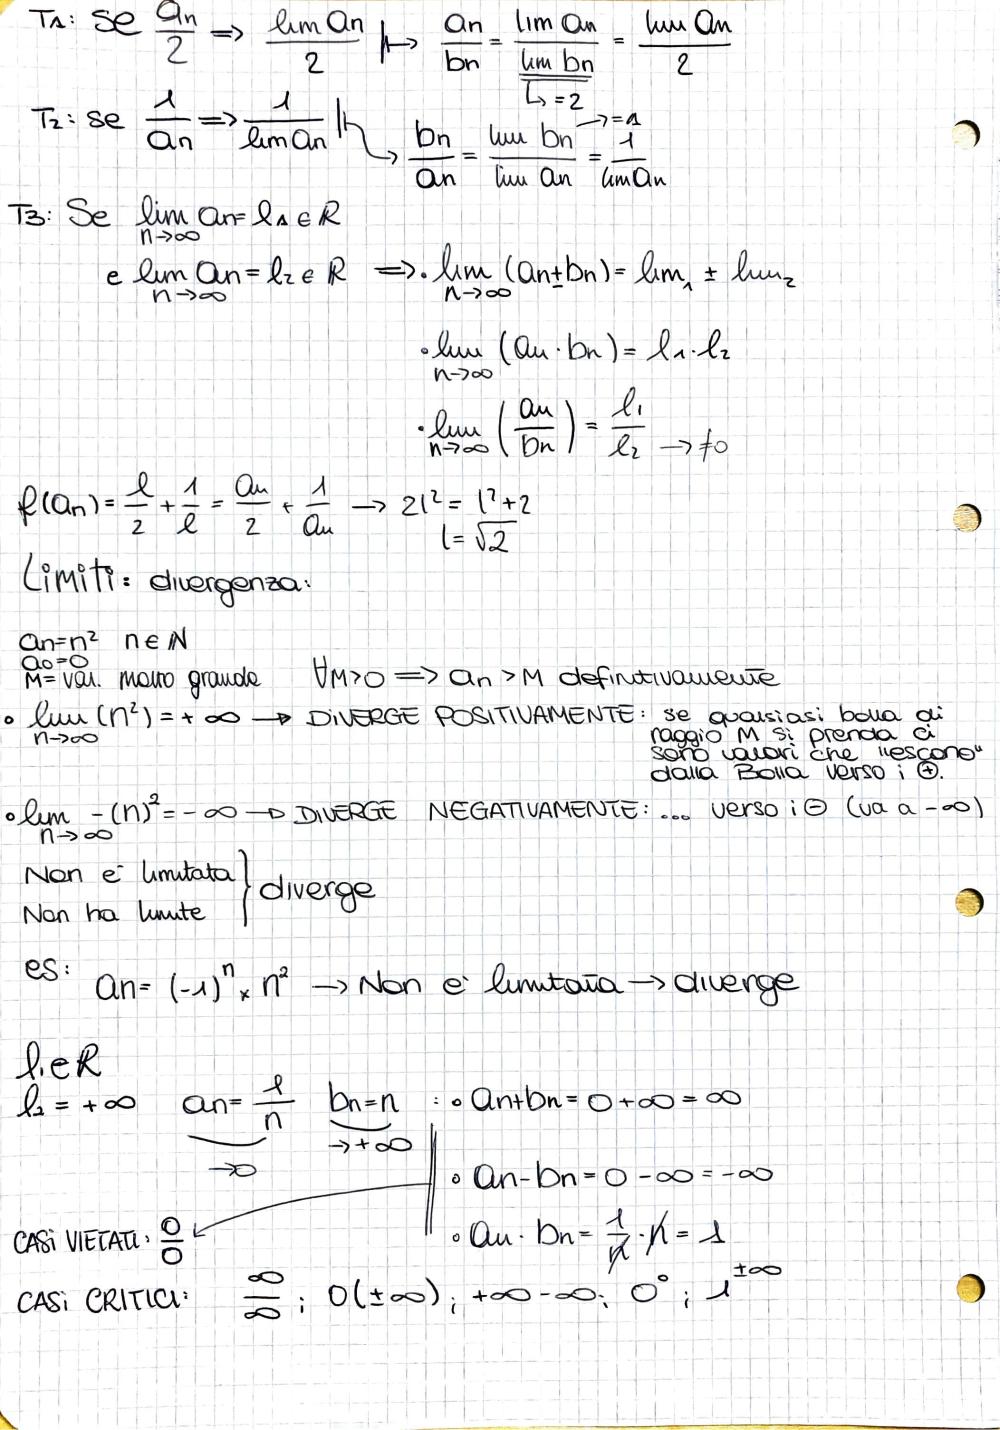 T1: se an/2 => lim an/2 |→ an/bn = lim an/lim bn = lim an/2
↳ = 2
T2: se 1/an => 1/lim an |→ bn/an = lim bn/lim an = 1/lim an
→ = 1
T3: Se lim n→∞ an = l1 ∈ R
e lim n→∞ an = l2 ∈ R => • lim n→∞ (an ± bn) = lim1 ± lim2
• lim n→∞ (an · bn) = l1 · l2
• lim n→∞ (an/bn) = l1/l2 → ≠0
f(an) = l/2 + 1/l = an/2 + 1/an → 2l² = l² + 2
l = √2
Limiti: divergenza:
an = n² n ∈ N
a0 = 0
M = val. molto grande ∀M>0 => an > M definitivamente
• lim n→∞ (n²) = +∞ → DIVERGE POSITIVAMENTE: se qualsiasi bolla di
raggio M si prenda ci
sono valori che "escono"
dalla Bolla verso i ⊕.
• lim n→∞ -(n)² = -∞ → DIVERGE NEGATIVAMENTE: ... verso i ⊖ (va a -∞)
Non è limitata
Non ha limite } diverge
es: an = (-1)ⁿ × n² → Non è limitata → diverge
l1 ∈ R
l2 = +∞ an = 1/n bn = n : • an+bn = 0+∞ = ∞
→0 →+∞
• an-bn = 0 -∞ = -∞
• an · bn = 1/n · n = 1
CASI VIETATI: 0/0
CASI CRITICI: ∞/∞ ; 0(±∞) ; +∞-∞ ; 0⁰ ; 1^±∞